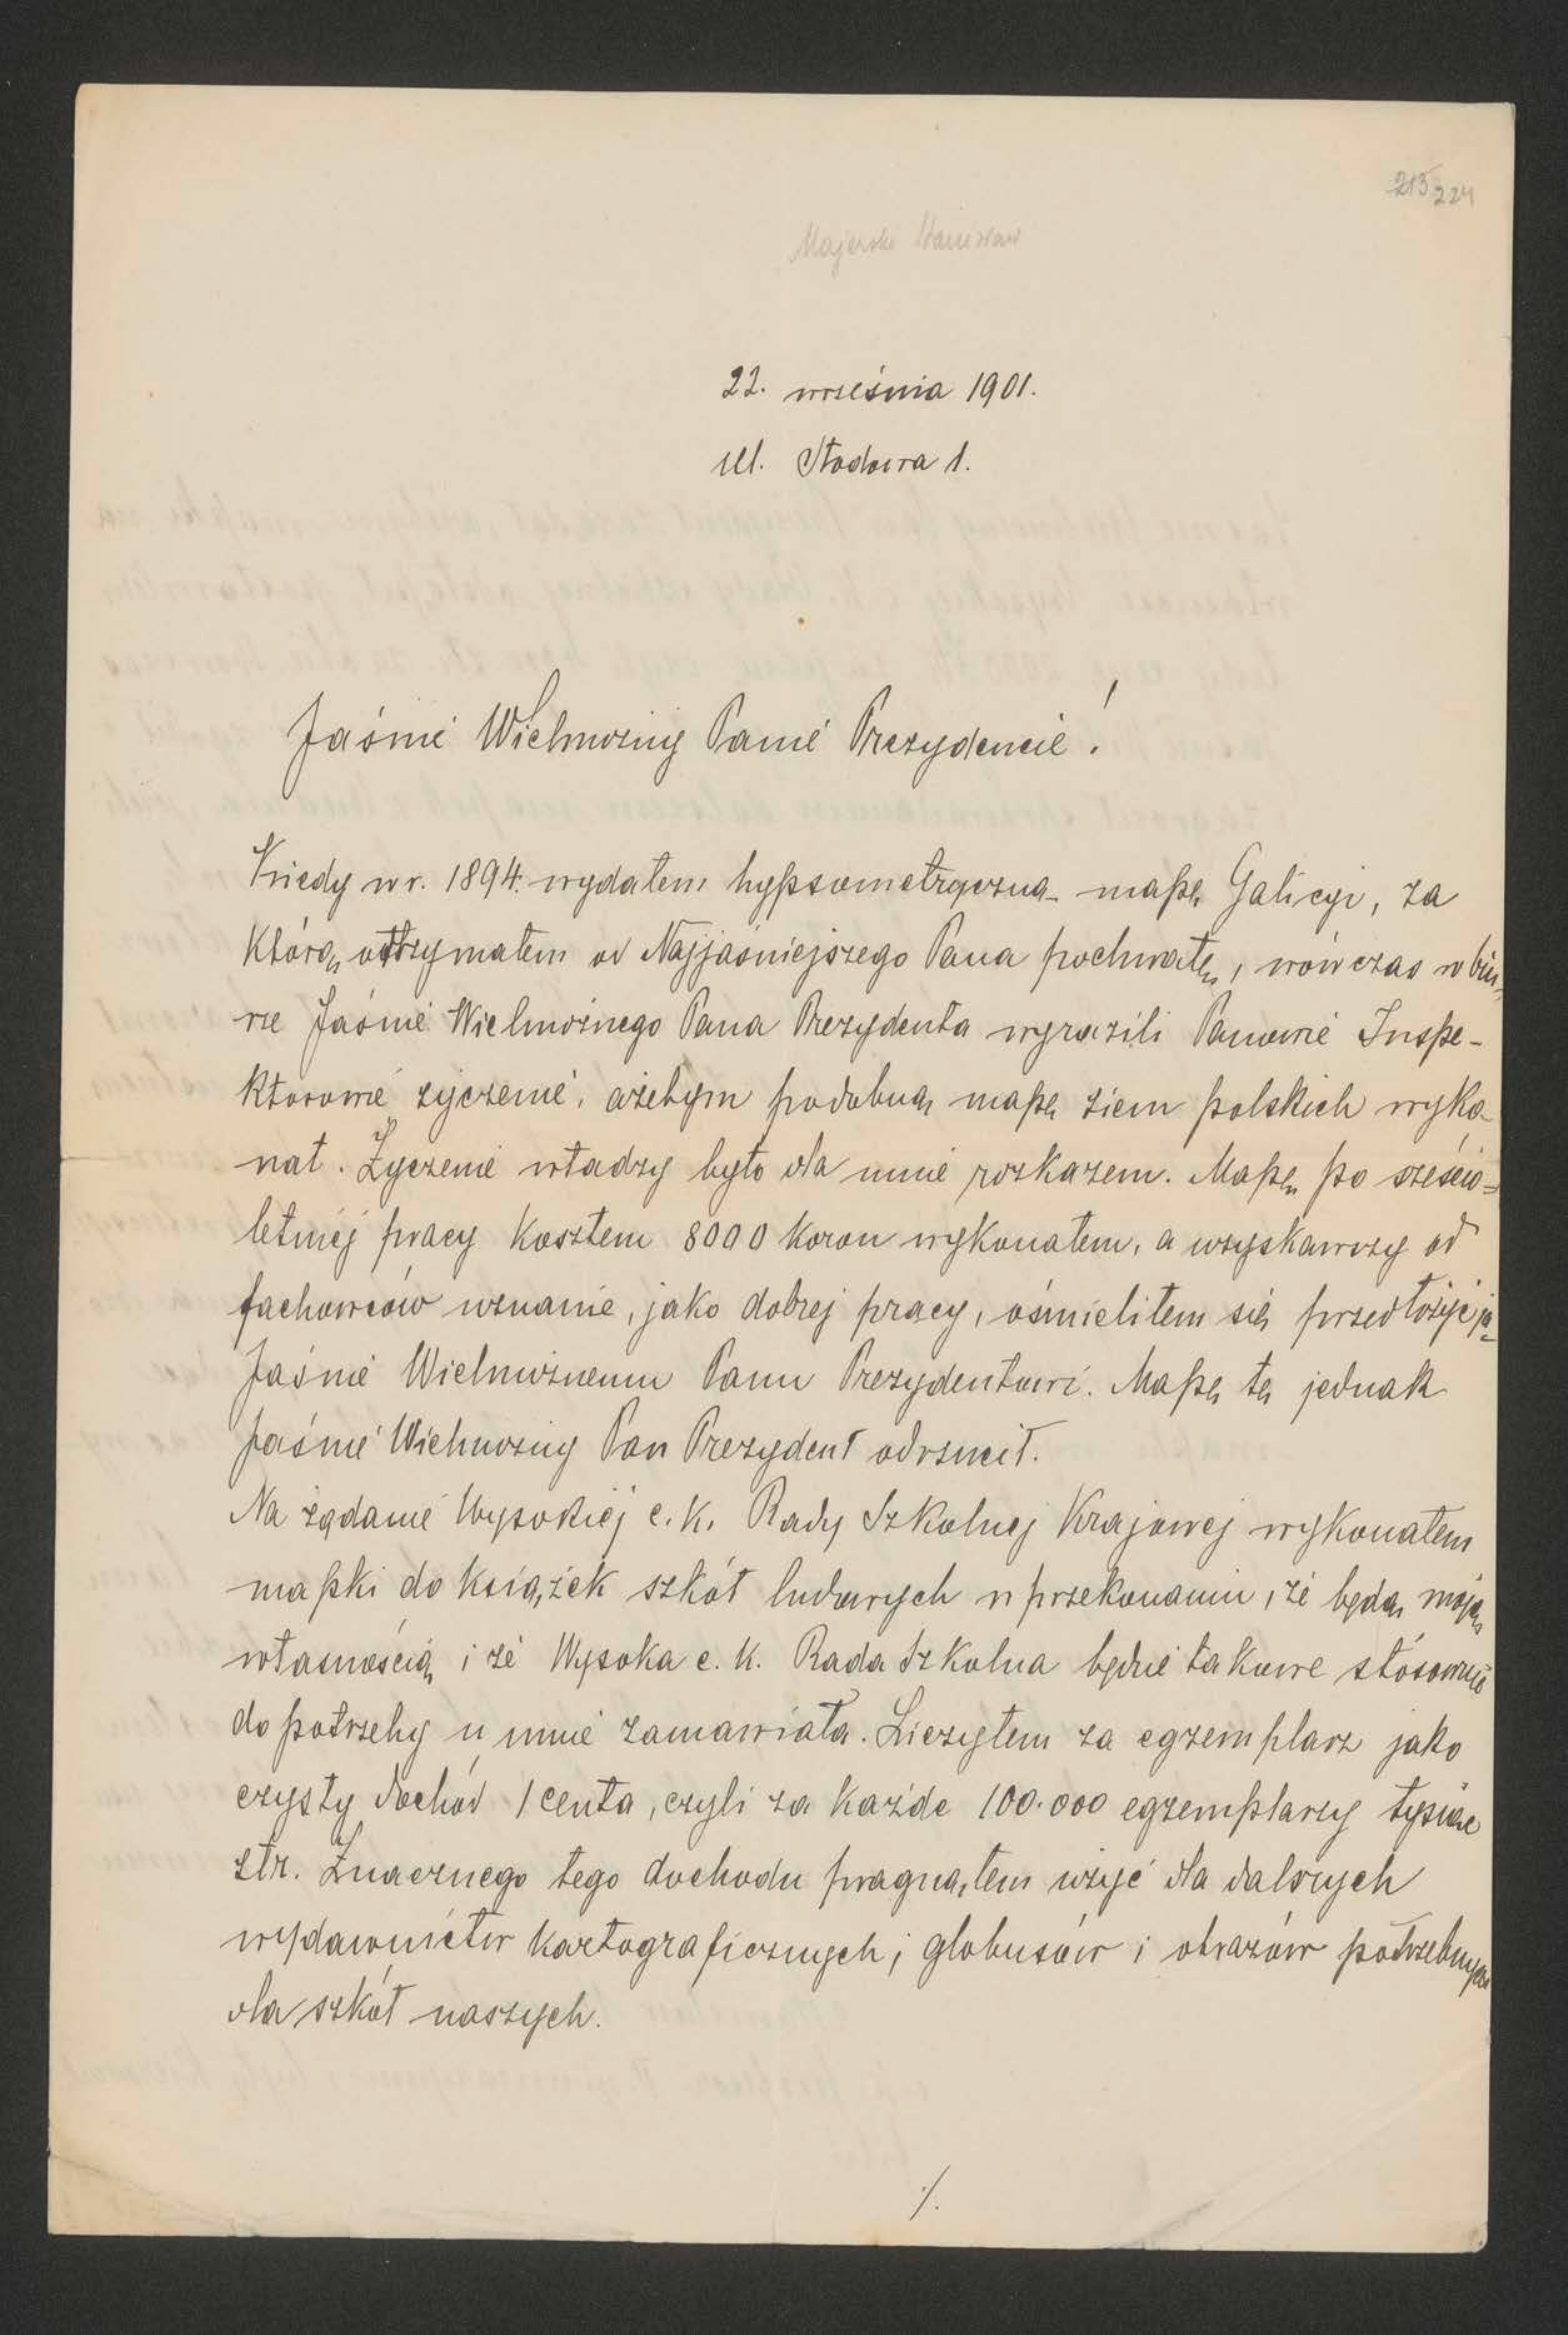 213 224
Majerski Stanisław
22. września 1901.
ul. Stodowa 1.
Jaśnie Wielmożny Panie Prezydencie!
Kiedy w r. 1894. wydałem hypsometryczną mapę Galicyi, za
którą otrzymałem od Najjaśniejszego Pana pochwałę, wówczas w biu-
rze Jaśnie Wielmożnego Pana Prezydenta wyrazili Panowie Inspe-
ktorowie życzenie, ażebym podobną mapę ziem polskich wyko-
nał. Życzenie władzy było dla mnie rozkazem. Mapę po sześcio-
letniej pracy kosztem 8000 koron wykonałem, a uzyskawszy od
fachowców uznanie, jako dobrej pracy, ośmieliłem się przedłożyć ją
Jaśnie Wielmożnemu Panu Prezydentowi. Mapę tę jednak
Jaśnie Wielmożny Pan Prezydent odrzucił.
Na żądanie Wysokiej c. k. Rady Szkolnej Krajowej wykonałem
mapki do książek szkół ludowych w przekonaniu, że będą moją
własnością i że Wysoka c. k. Rada Szkolna będzie takowe stósownie
do potrzeby u mnie zamawiała. Liczyłem za egzemplarz jako
czysty dochód 1 centa, czyli za każde 100.000 egzemplarzy tysiąc
złr. Znacznego tego dochodu pragnąłem użyć dla dalszych
wydawnictw kartograficznych, globusów i obrazów potrzebnych
dla szkół naszych.
./.